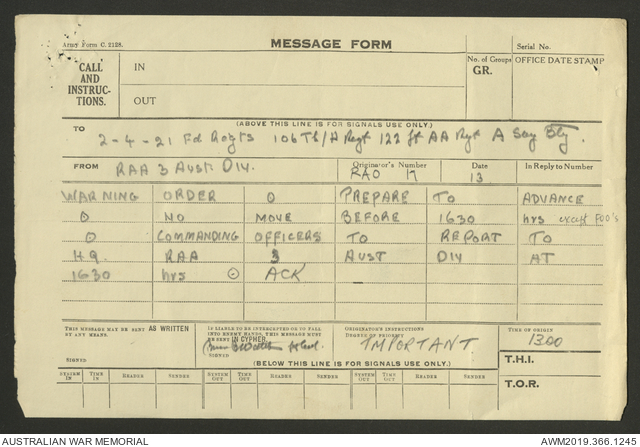 Army Form C. 2128.
MESSAGE FORM
Serial No.
CALL AND INSTRUC- TIONS.
IN
OUT
No. of Groups
GR.
OFFICE DATE STAMP
(ABOVE THIS LINE IS FOR SIGNALS USE ONLY.)
TO 2-4-21 Fd Regts 106 Tk/A Regt 122 Lt AA Regt A Svy Bty
FROM RAA 3 AUST. DIV.
Originator's Number
RAO 17
Date
13
In Reply to Number
WARNING ORDER O PREPARE TO ADVANCE
O NO MOVE BEFORE 1630 hrs except FOO's
O COMMANDING OFFICERS TO REPORT TO
H.Q. RAA 3 AUST DIV AT
1630 hrs ⊙ ACK
THIS MESSAGE MAY BE SENT AS WRITTEN
SIGNED
IS LIABLE TO BE INTERCEPTED OR TO FALL INTO ENEMY HANDS. THIS MESSAGE MUST BE SENT IN CIPHER
SIGNED
ORIGINATOR'S INSTRUCTIONS
DEGREE OF PRIORITY
IMPORTANT
TIME OF ORIGIN
1300
(BELOW THIS LINE IS FOR SIGNALS USE ONLY.)
T.H.I.
T.O.R.
SYSTEM IN TIME IN READER SENDER SYSTEM OUT TIME OUT READER SENDER SYSTEM OUT TIME OUT READER SENDER
AUSTRALIAN WAR MEMORIAL
AWM2019.366.1245